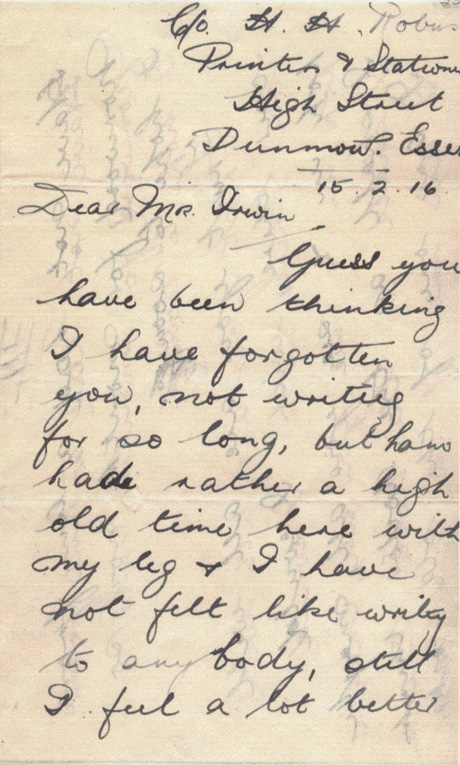 C/o. H. H. Robin
Printer & Station
High Street
Dunmow. Esse
15. 2. 16
Dear Mr. Irwin
Guess you
have been thinking
I have forgotten
you, not writing
for so long, but have
had rather a high
old time here with
my leg & I have
not felt like writing
to any body, still
I feel a lot better